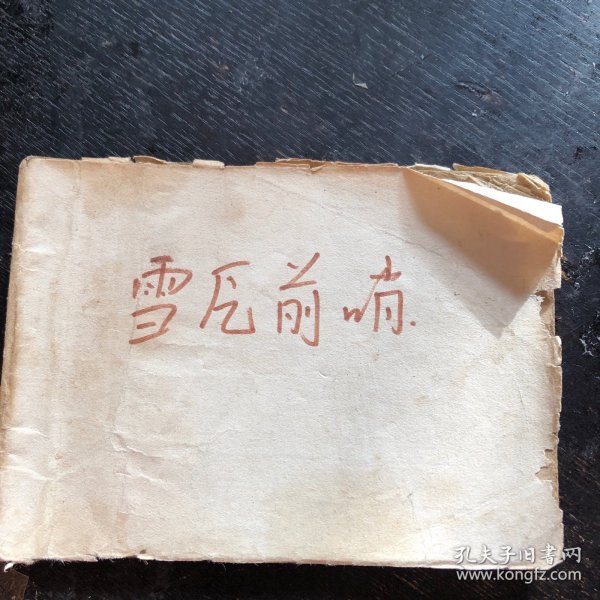 雪尼前哨.
孔夫子旧書网
www.kongfz.com